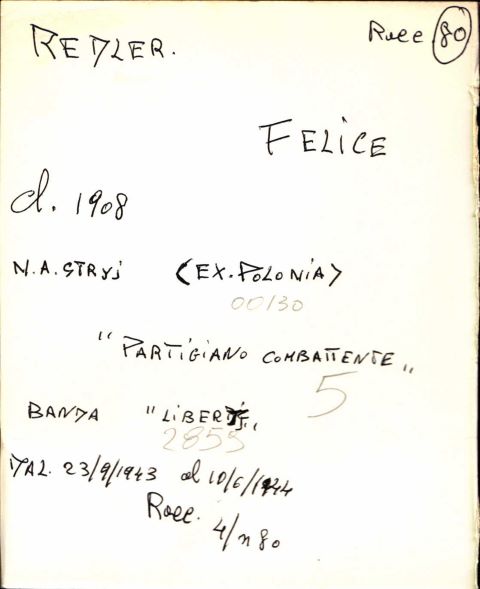 REDLER.
Racc 80
FELICE
d. 1908
N.A. STRYJ (EX. POLONIA)
00130
"PARTIGIANO COMBATTENTE"
5
BANDA "LIBERTJ"
2855
DAL 23/9/1943 al 10/6/1944
Racc. 4/n 80